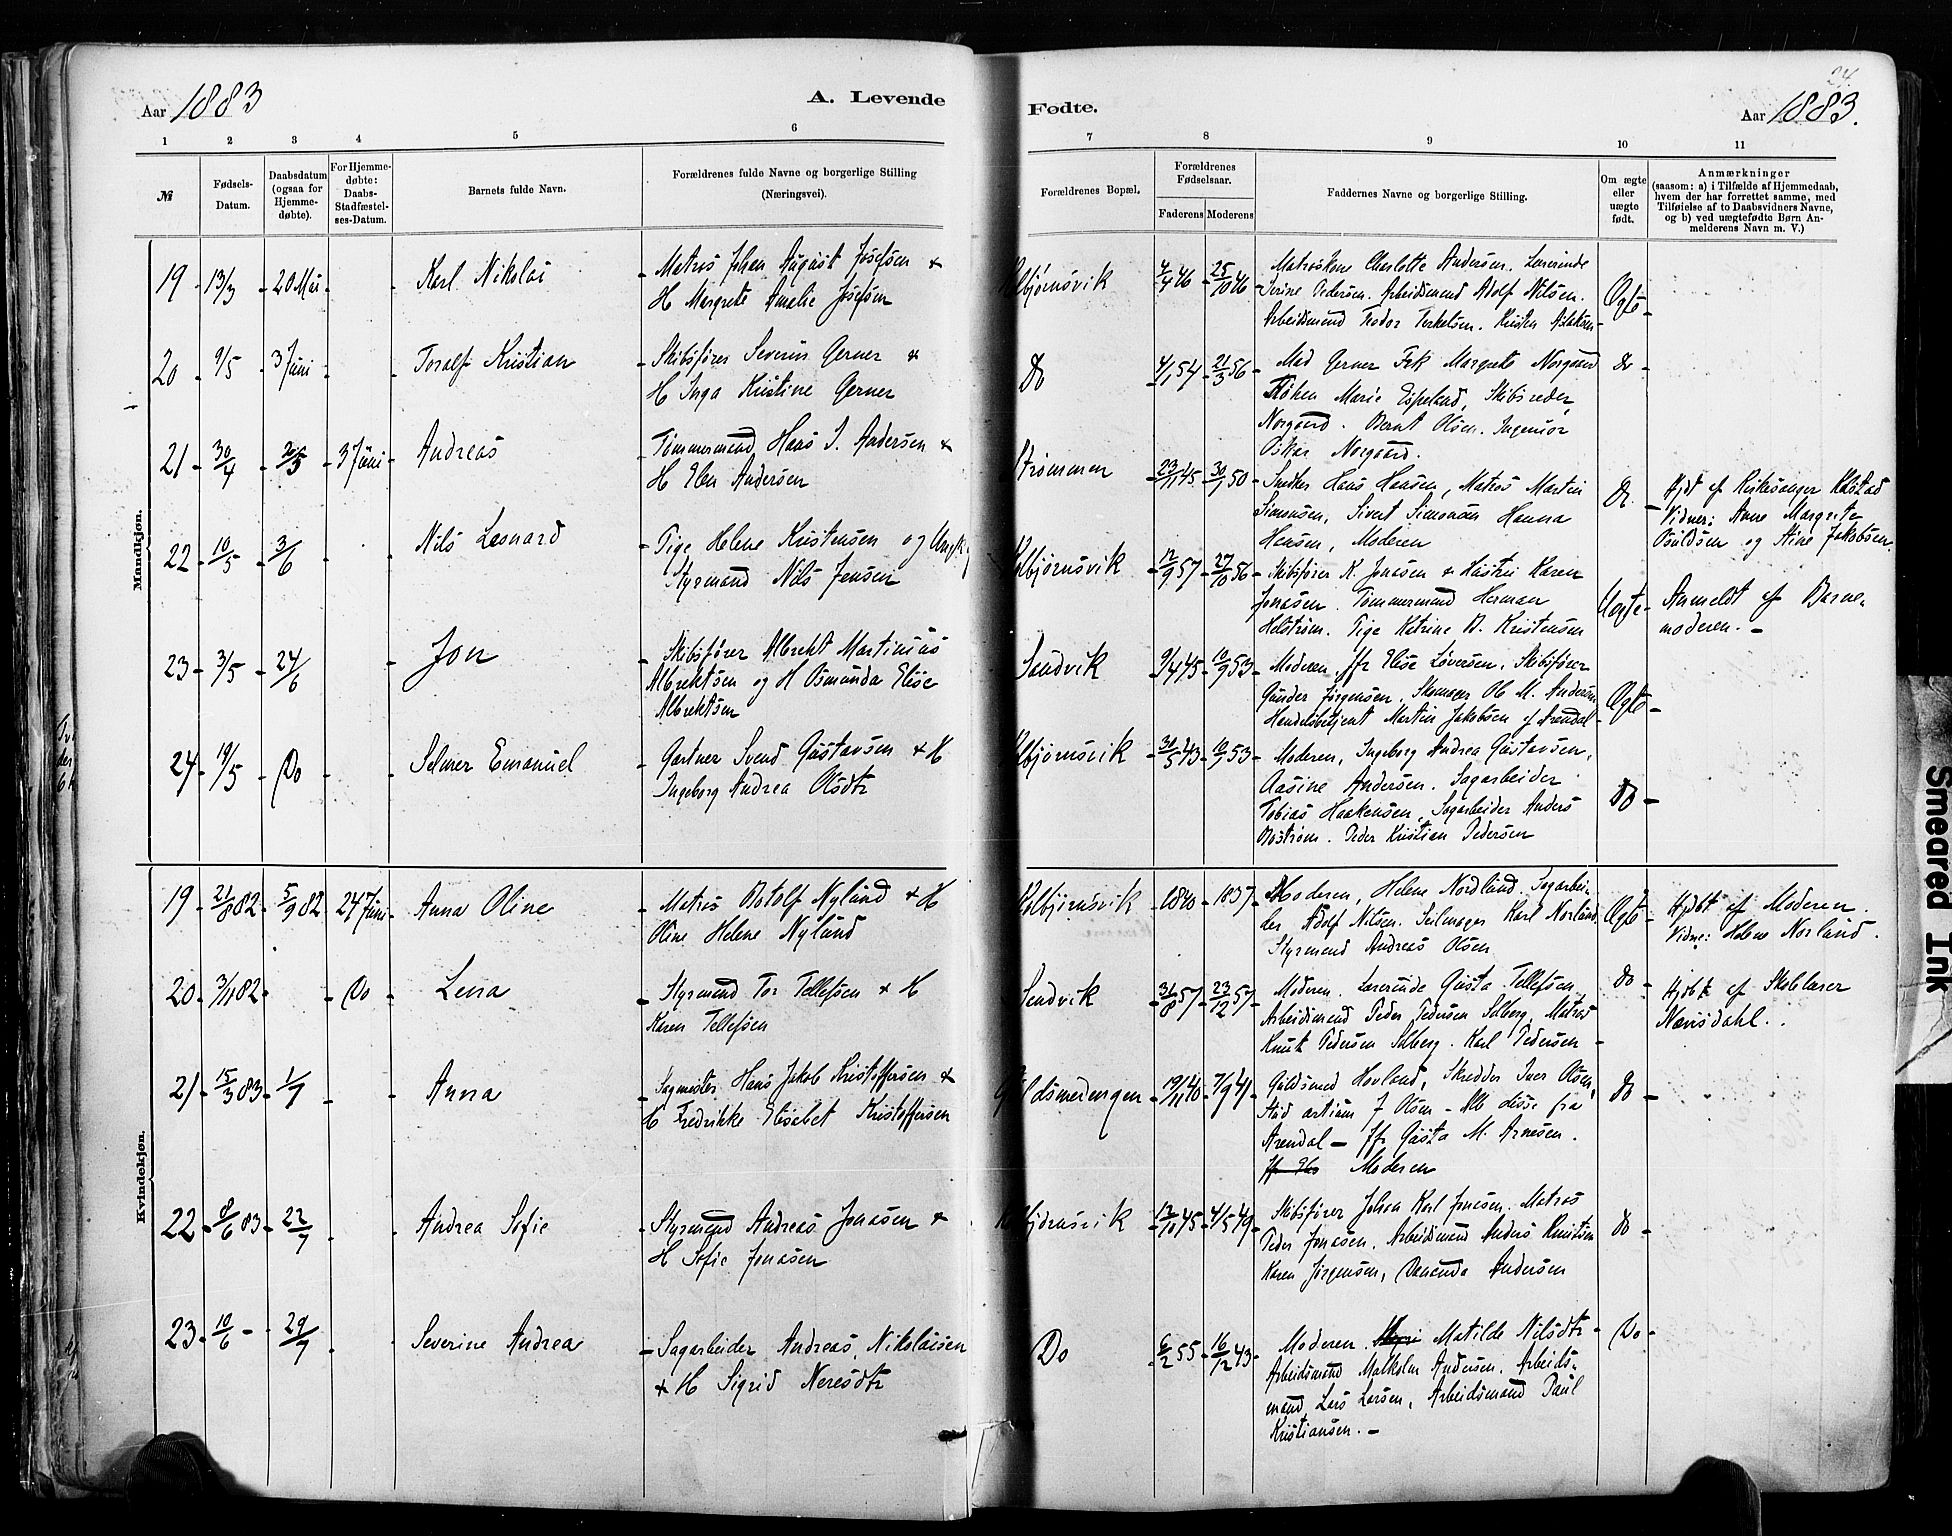 24
Aar 1883
A. Levende
Fødte.
Aar 1883.
1 2 3 4 5 6 7 8 9 10 11
№
Fødsels-
Datum.
Daabsdatum
(ogsaa for
Hjemme-
døbte).
For Hjemme-
døbte:
Daabs-
Stadfæstel-
ses-Datum.
Barnets fulde Navn.
Forældrenes fulde Navne og borgerlige Stilling
(Næringsvei).
Forældrenes Bopæl.
Forældrenes
Fødselsaar.
Faderens Moderens
Faddernes Navne og borgerlige Stilling.
Om ægte
eller
uægte
født.
Anmærkninger
(saasom: a) i Tilfælde af Hjemmedaab,
hvem der har forrettet samme, med
Tilføielse af to Daabsvidners Navne,
og b) ved uægtefødte Børn An-
melderens Navn m. V.)
Mandkjøn.
19 13/3 20 Mai Karl Nikolai
Matros Johan August Josefsen +
H Margrete Amalie Josefsen
Kolbjørnsvik 4/4 46 25/10 46
Matroskone Charlotte Andersen. Lærerinde
Serine Pedersen. Arbeidsmand Adolf Nilsen.
Arbeidsmand Tedor Terkelsen. Kristen Aslaksen
Ægte
20 9/5 3 Juni Toralf Kristian
Skibsfører Severin Gerner +
H Inga Kristine Gerner
Do 4/1 54 21/3 56
Mad Gerner Frk Margrete Norgaard
Frøken Marie Espeland, Skibsreder
Norgaard. Bernt Olsen. Ingeniør
Oskar Norgaard.
do
21 30/4 3 Juni Andreas
Tømmermand Hans J. Andersen +
H Elen Andersen
Strømmen 23/11 45 30/1 50
Snedker Hans Hansen, Matros Martin
Simonsen, Sivert Simonsen Hanna
Hansen, Moderen
Do
Hjdt af Kirkesanger Kalstad
Vidner: Anne Margrete
Osuldsen og Stine Jakobsen.
22 10/5 3/6 Nils Leonard
Pige Helene Kristensen og Ungk
Styrmand Nils Jensen
Kolbjørnsvik 12/9 57 27/10 56
Skibsfører K. Jonasen + Hustru Karen
Jonasen. Tømmermand Herman
Helstrøm. Pige Katrine B. Kristensen
Uægte
Anmeldt af Barne-
moderen.
23 3/5 24/6 Jon
Skibsfører Albrekt Martinius
Albrektsen og H Osmunda Elise
Albrektsen
Sandvik 9/4 45 10/9 53
Moderen Jfr Elise Løversen. Skibsfører
Gunder Jørgensen, Skomager Ole M. Andersen
Handelsbetjent Martin Jakobsen af Arendal
Ægte
24 19/5 Do Selmer Emanuel
Gartner Svend Gustavsen + H
Ingeborg Andrea Olsdtr
Kolbjørnsvik 30/5 43 10/1 53
Moderen, Ingeborg Andrea Gustavsen,
Aasine Andersen. Sagarbeider
Tobias Haakensen, Sagarbeider Anders
Bostrøm. Peder Kristian Pedersen
Do
Kvindekjøn.
19 21/8 82 5/9 82 24 Juni Anna Oline
Matros Botolf Nylund + H
Oline Helene Nylund
Kolbjørnsvik 1840 1837
Moderen, Helene Nordland. Sagarbei-
der Adolf Nilsen. Seilmager Karl Norland
Styrmand Andreas Olsen
Ægte
Hjdbt af Moderen.
Vidne: Helene Norland.
20 3/11 82 Do Lena
Styrmand Tor Tellefsen + H
Karen Tellefsen
Sandvik 31/8 57 23/12 57
Moderen. Lærerinde Gusta Tellefsen
Arbeidsmand Peder Pedersen Solberg. Matros
Knut Pedersen Solberg. Karl Pedersen
Do
Hjdbt af Skolelærer
Nævisdahl.
21 15/3 83 1/7 Anna
Sagmester Hans Jakob Kristoffersen +
H Fredrikke Elisabet Kristoffersen
Guldsmedengen 19/11 40 7/9 41
Guldsmed Hovland, Skrædder Iver Olsen,
Stud artium J Olsen – Alle disse fra
Arendal – Jfr Gusta M. Arnesen.
Moderen
do
22 8/6 83 22/7 Andrea Sofie
Styrmand Andreas Jonasen +
H Sofie Jonasen
Kolbjørnsvik 12/10 45 4/5 49
Skibsfører Johan Karl Jonasen. Matros
Peder Jonasen. Arbeidsmand Anders Knutsen
Karen Jørgensen, Danenda Andersen
do
23 10/6 29/7 Severine Andrea
Sagarbeider Andreas Nikolaisen
+ H Sigrid Neresdtr
Do 6/2 55 16/12 43
Moderen. Matilde Nilsdtr
Arbeidsmand Malkolm Andersen. Arbeids-
mand Lars Larsen, Arbeidsmand Paul
Kristiansen.
Do
Smeared Ink